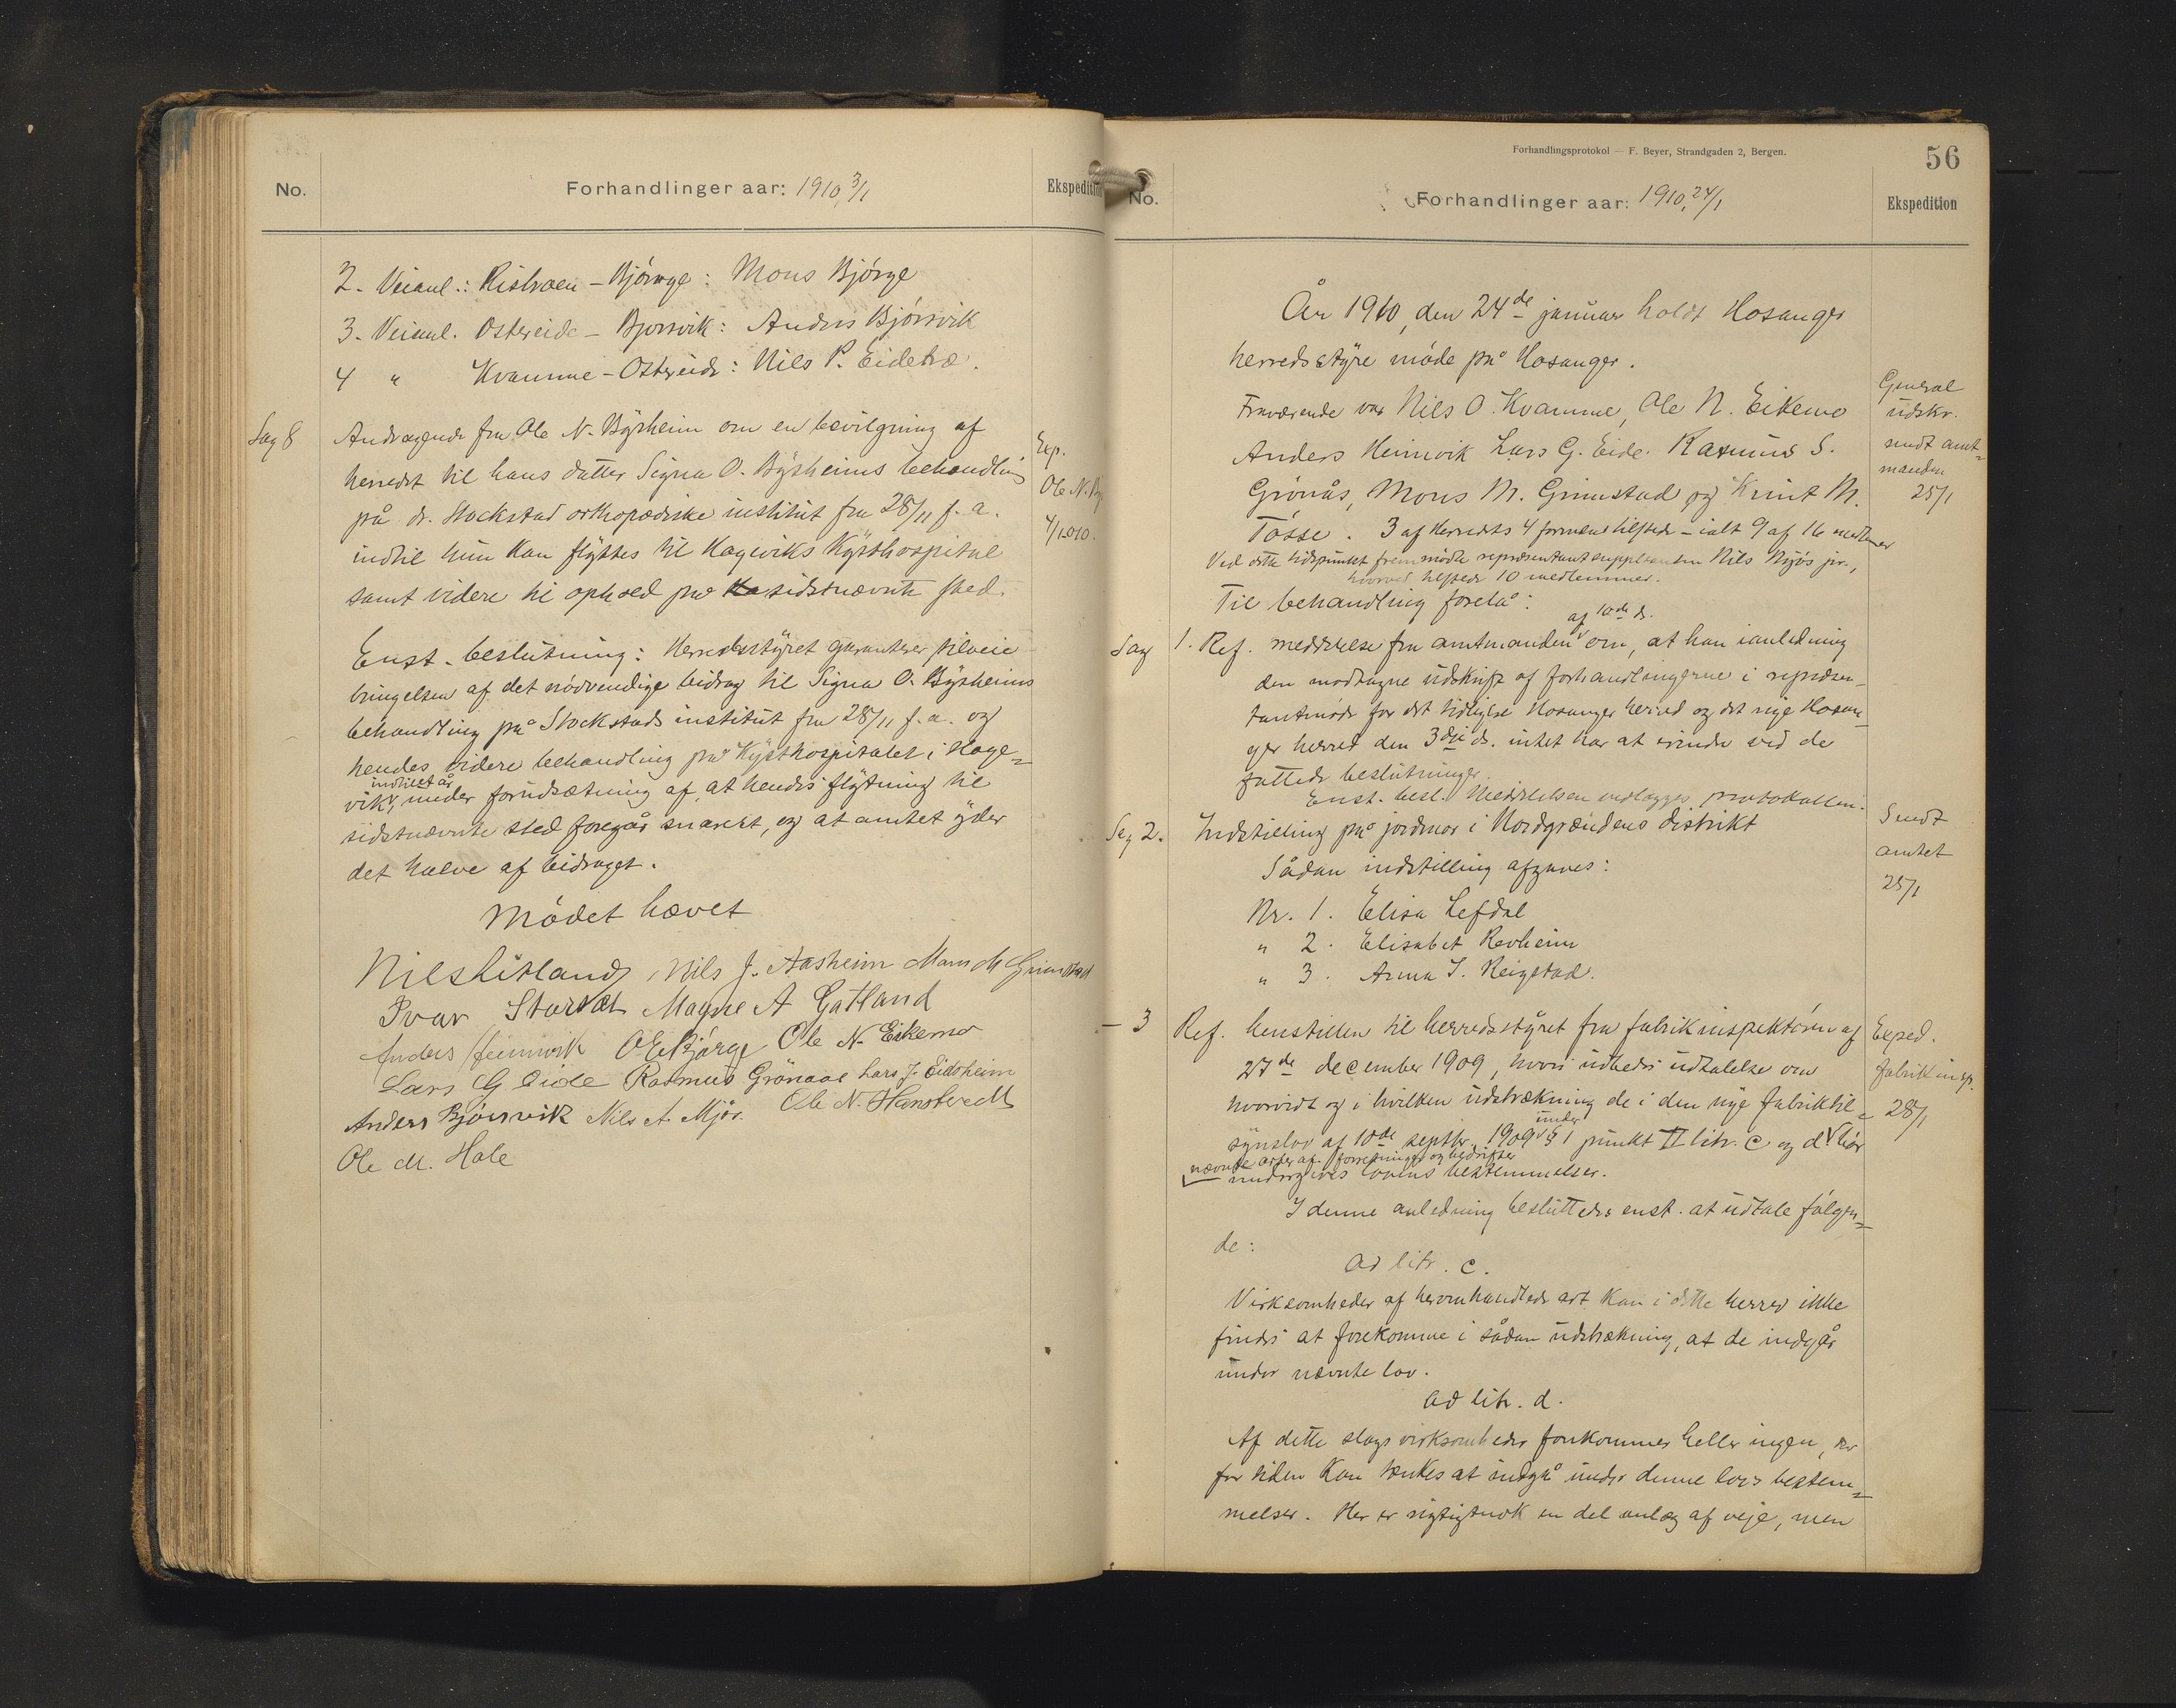 No.
Forhandlinger aar: 1910, 3/1
Ekspedition
2. Veianl.: Ristraen - Bjørge: Mons Bjørge
3. Veianl. Ostereide - Bjørsvik: Anders Bjørsvik
4 " Kvamme - Ostereide: Nils P. Eidetræ.
Sag 8
Andragende fra Ole N. Byrheim om en bevilgning af
herredet til hans datter Signa O. Byrheims behandling
på dr. Stockstad orthopædiske institut fra 28/11 f. a.
indtil hun kan flyttes til Hageviks Kysthospital
samt videre til ophold på sidstnævnte sted.
Exp.
Ole N. By
4/1-010.
Enst. beslutning: Herredsstyret garanterer tilveie
bringelsen af det nødvendige bidrag til Signa O. Byrheims
behandling på Stockstads institut fra 28/11 f. a. og
hendes videre behandling på Kysthospitalet i Hage=
indtil et år
vik, under forudsætning af, at hendes flytning til
sidstnævnte sted foregår snarest, og at amtet yder
det halve af bidraget.
Mødet hævet
Nils Litland, Nils J. Aasheim Mons M Grimstad
Ivar Storset Magne A Gatland
Anders Heimvik O E Bjørge Ole N. Eikemo
Lars G Eide Rasmus Grönaas Lars J. Eidsheim
Anders Bjørsvik Nils A. Mjøs. Ole N. Hanstvedt
Ole M. Hole
Forhandlingsprotokol — F. Beyer, Strandgaden 2, Bergen.
56
No.
Forhandlinger aar: 1910, 24/1
Ekspedition
År 1910, den 24de januar holdt Hosanger
herredsstyre møde på Hosanger.
Fraværende var Nils O. Kvamme, Ole N. Eikemo
Anders Heimvik Lars G. Eide. Rasmus S.
Grønås, Mons M. Grimstad og Knut M.
Tøsse. 3 af Herredets 4 formænd tilstede - ialt 9 af 16 medlemmer
Ved dette tidspunkt fremmødte repræsentantsuppleanten Nils Mjøs jr.,
hvorved tilstede 10 medlemmer.
General
udskr.
sendt amt=
manden
25/1
Til behandling forelå:
af 10de ds.
Sag 1. Ref. meddelelse fra amtmanden om, at han ianledning
den modtagne udskrift af forhandlingerne i repræsen-
tantmøde for det tidligere Hosanger herred og det nye Hosan-
ger herred den 3die ds. intet har at erindre ved de
fattede beslutninger.
Enst. besl. Meddelelsen vedlægges protokollen.
Sag 2. Indstilling på jordmor i Nordgrændens distrikt
Sådan indstilling afgaves:
Nr. 1. Elisa Lefdal
" 2. Elisabet Revheim
" 3. Anna I. Reigstad.
Sendt
amtet
25/1
- 3 Ref. henstillen til herredsstyret fra fabrikinspektøren af
27de december 1909, hvori udbedes udtalelse om
hvorvidt og i hvilken udstrækning de i den nye fabriktil=
under
synslov af 10de septbr. 1909 § 1 punkt II litr. c og d bør
nævnte arter af forretninger og bedrifter
undergives lovens bestemmelser.
Exped.
fabrikinsp.
28/1
I denne anledning besluttedes enst. at udtale følgen=
de:
Ad litr. c.
Virksomheder af heromhandlede art kan i dette herred ikke
findes at forekomme i sådan udstrækning, at de indgår
under nævnte lov.
Ad litr. d.
Af dette slags virksomheder forekommer heller ingen, der
for tiden kan tænkes at indgå under denne lovs bestem=
melser. Her er rigtignok en del anlæg af veje, men